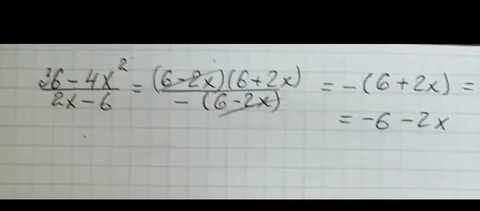 (36 - 4x²)/(2x - 6) = ((6 - 2x)(6 + 2x))/(- (6 - 2x)) = -(6 + 2x) =
= -6 - 2x